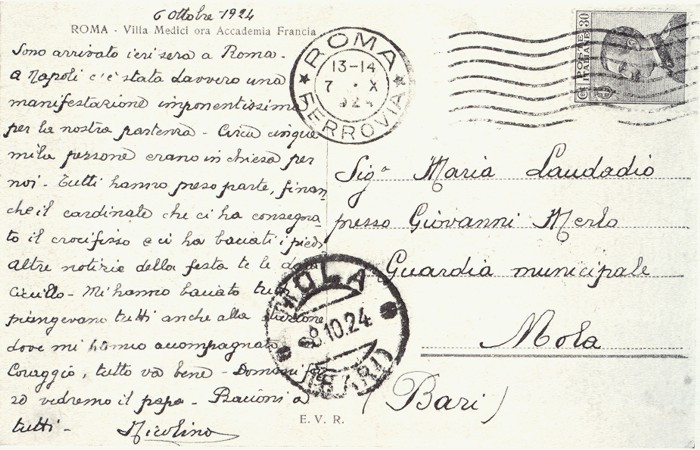 6 Ottobre 1924
ROMA - Villa Medici ora Accademia Francia
Sono arrivato ieri sera a Roma -
A Napoli c'è stata davvero una
manifestazione imponentissima
per la nostra partenza - Circa cinque
mila persone erano in chiesa per
noi - Tutti hanno preso parte, finan
che il cardinale che ci ha consegna
to il crocifisso e ci ha baciati i piedi
Altre notizie della festa te le darà
Cirillo - Mi hanno baciato tutti
piangevano tutti anche alla stazione
dove mi hanno accompagnato
Coraggio, tutto va bene - Domani
vedremo il papa - Bacioni a
tutti - Nicolino
ROMA
13-14
7 · X
924
FERROVIA
POSTE
ITALIANE
30
Sigª Maria Laudadio
presso Giovanni Merlo
Guardia municipale
Mola
(Bari)
MOLA
8.10.24
BARI
E. V. R.